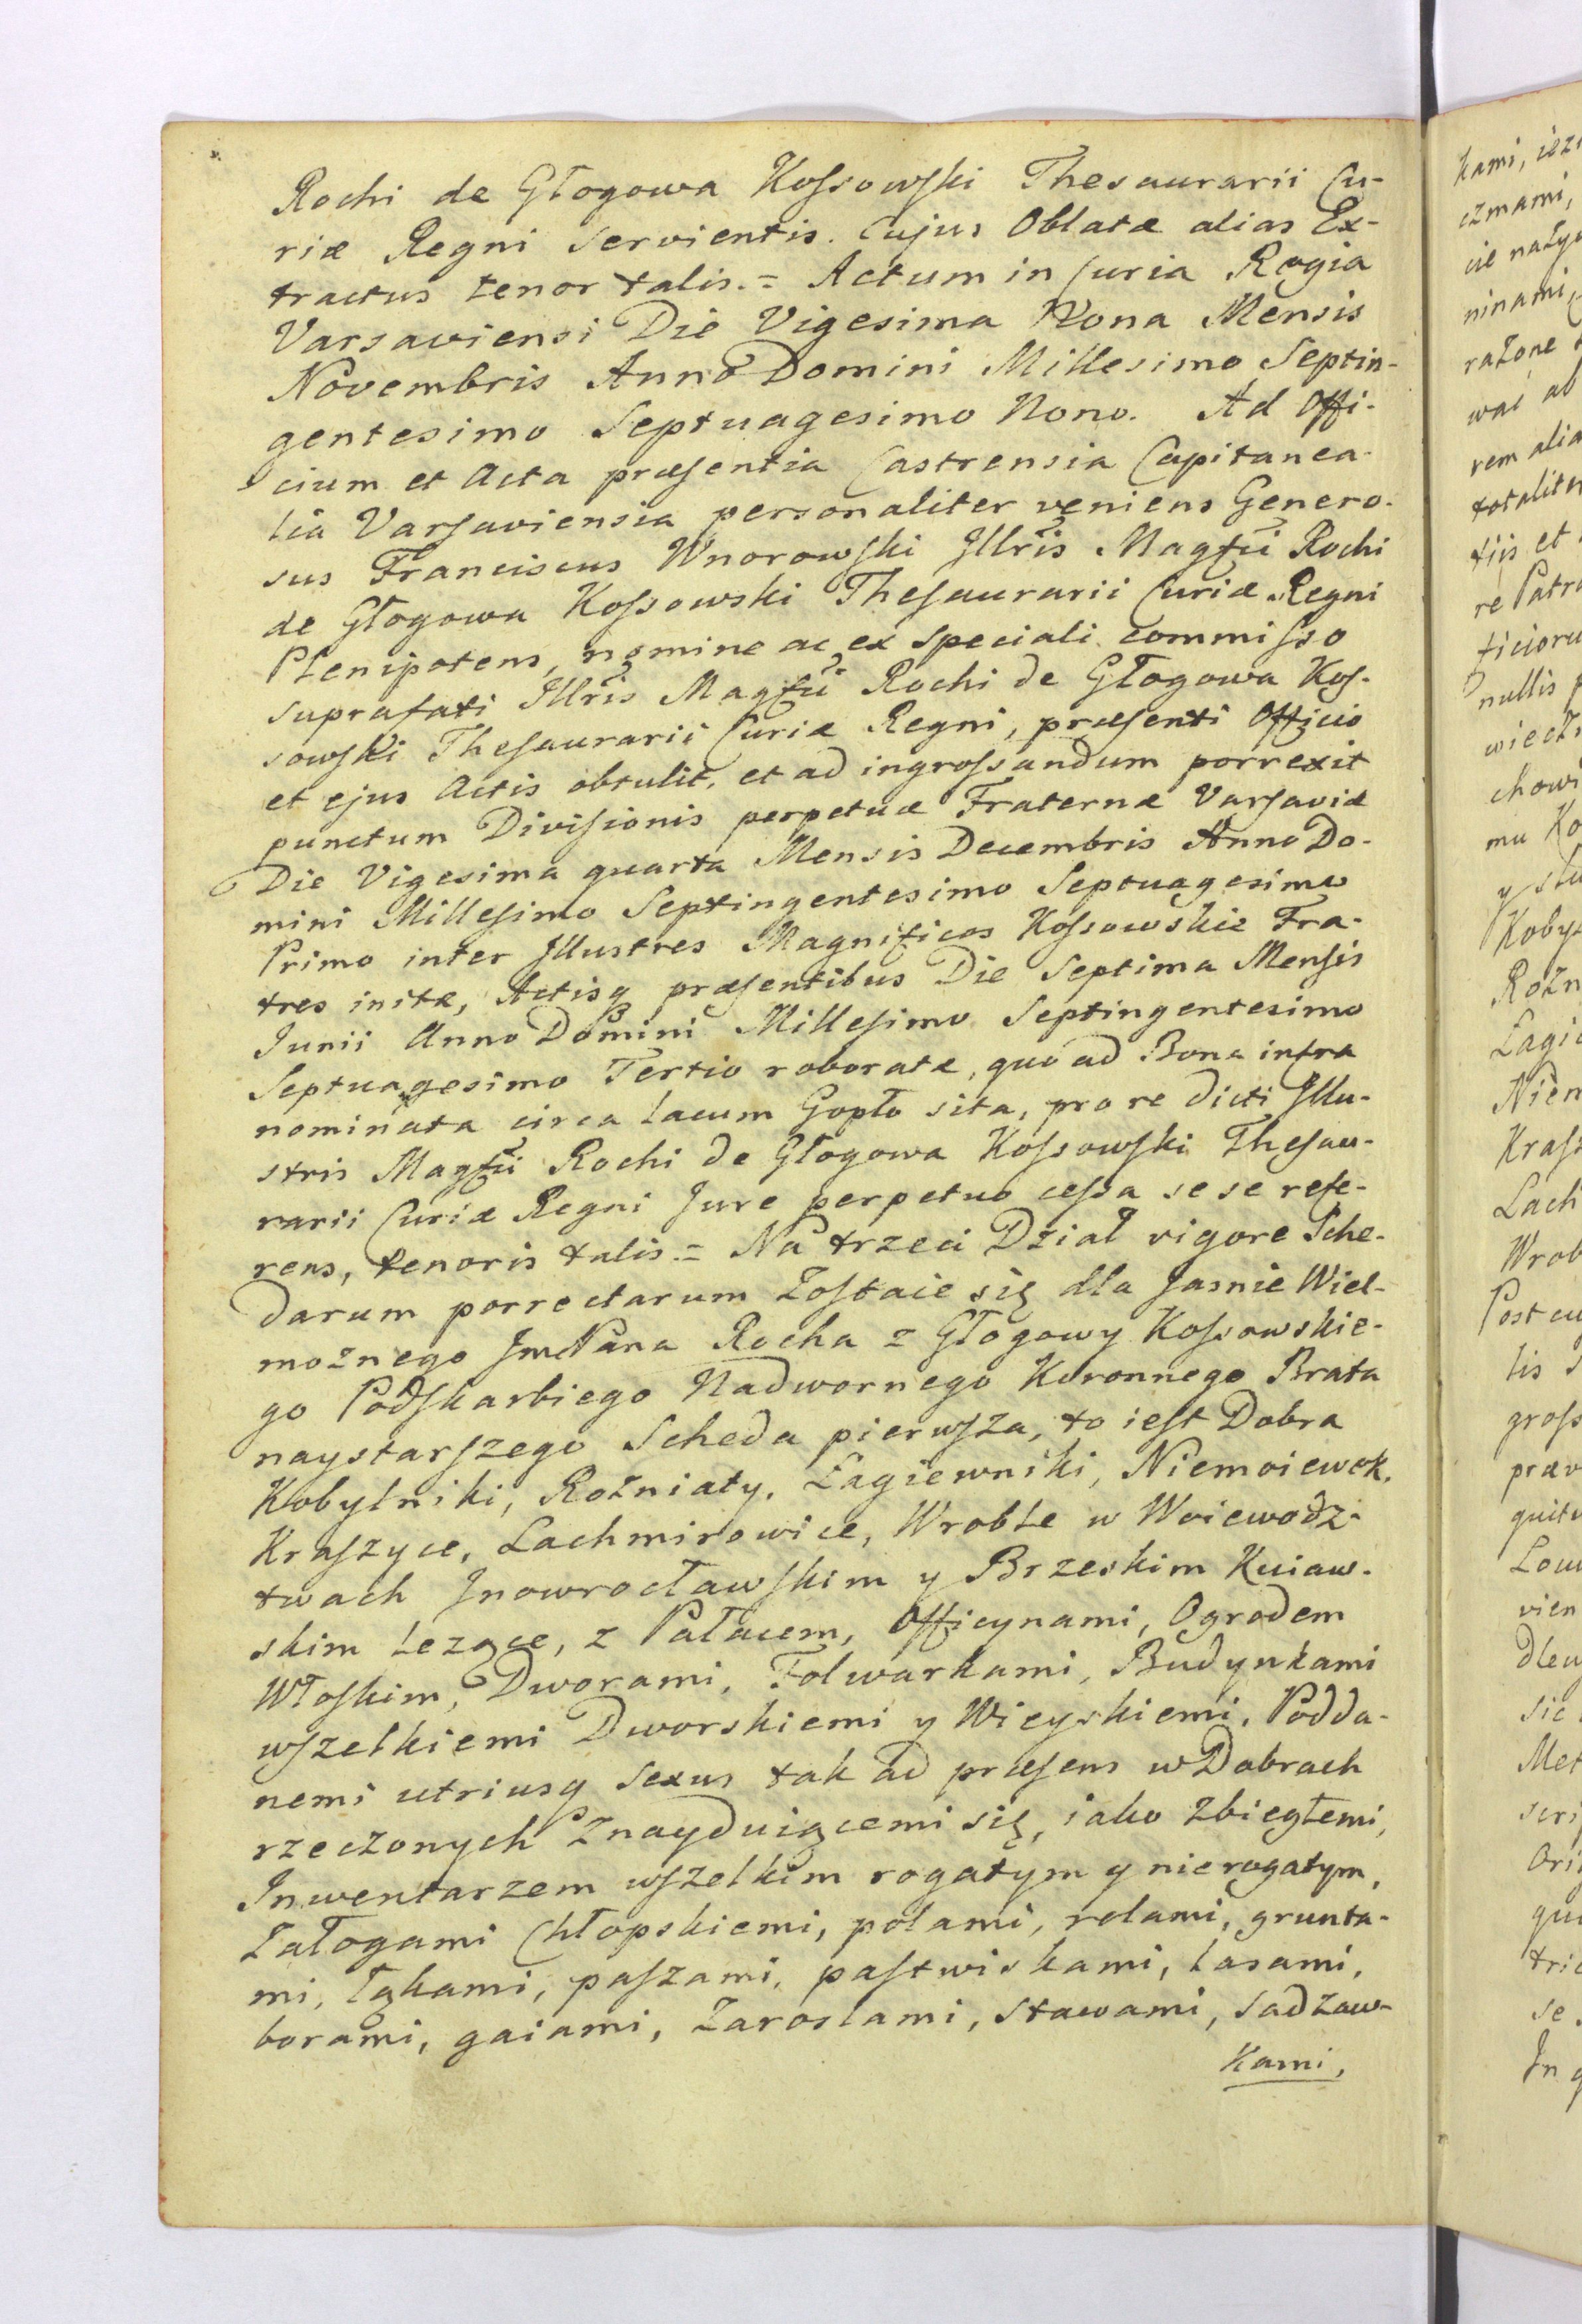 Rochi de Głogowa Kossowski Thesaurarii Cu-
riæ Regni servientis. Cujus Oblatæ alias Ex-
tractus tenor talis.= Actum in Curia Regia
Varsaviensi Die Vigesima Nona Mensis
Novembris Anno Domini Millesimo Septin-
gentesimo Septuagesimo Nono. Ad Offi-
cium et Acta præsentia Castrensia Capitanea-
lia Varsaviensia personaliter veniens Genero-
sus Franciscus Wnorowski Illris Magfci Rochi
de Głogowa Kossowski Thesaurarii Curiæ Regni
Plenipotens, nomine ac ex speciali commisso
suprafati Illris Magfci Rochi de Głogowa Kos-
sowski Thesaurarii Curiæ Regni, præsenti Officio
et ejus Actis obtulit, et ad ingrossandum porrexit
punctum Divisionis perpetuæ Fraternæ Varsaviæ
Die Vigesima quarta Mensis Decembris Anno Do-
mini Millesimo Septingentesimo Septuagesimo
Primo inter Illustres Magnificos Kossowskie Fra-
tres initæ, Actisq præsentibus Die Septima Mensis
Junii Anno Domini Millesimo Septingentesimo
Septuagesimo Tertio roboratæ, quo ad Bona infra
nominata circa lacum Gopło sita, pro re dicti Illu-
stris Magfci Rochi de Głogowa Kossowski Thesau-
rarii Curiæ Regni Jure perpetuo cessa se se refe-
rens, tenoris talis.= Na trzeci Dział vigore Sche-
darum porrectarum Zostaie się dla Jasnie Wiel-
możnego JmPana Rocha z Głogowy Kossowskie-
go Podskarbiego Nadwornego Koronnego Brata
naystarszego Scheda pierwsza, to iest Dobra
Kobylniki, Rożniaty, Łagiewniki, Niemoiewek,
Kraszyce, Lachmirowice, Wroble w Woiewodz-
twach Jnowrocławskim y Brzeskim Kuiaw-
skim leżące, z Pałacem, Officynami, Ogrodem
Włoskim, Dworami, Folwarkami, Budynkami
wszelkiemi Dworskiemi y Wieyskiemi, Podda-
nemi utriusq Sexus tak ad præsens w Dobrach
rzeczonych Znayduiącemi się, iako Zbiegłemi,
Inwentarzem wszelkim rogatym y nierogatym,
Załogami Chłopskiemi, polami, rolami, grunta-
mi, łąkami, paszami, pastwiskami, lasami,
borami, gaiami, Zaroslami, Stawami, Sadzaw-
kami,